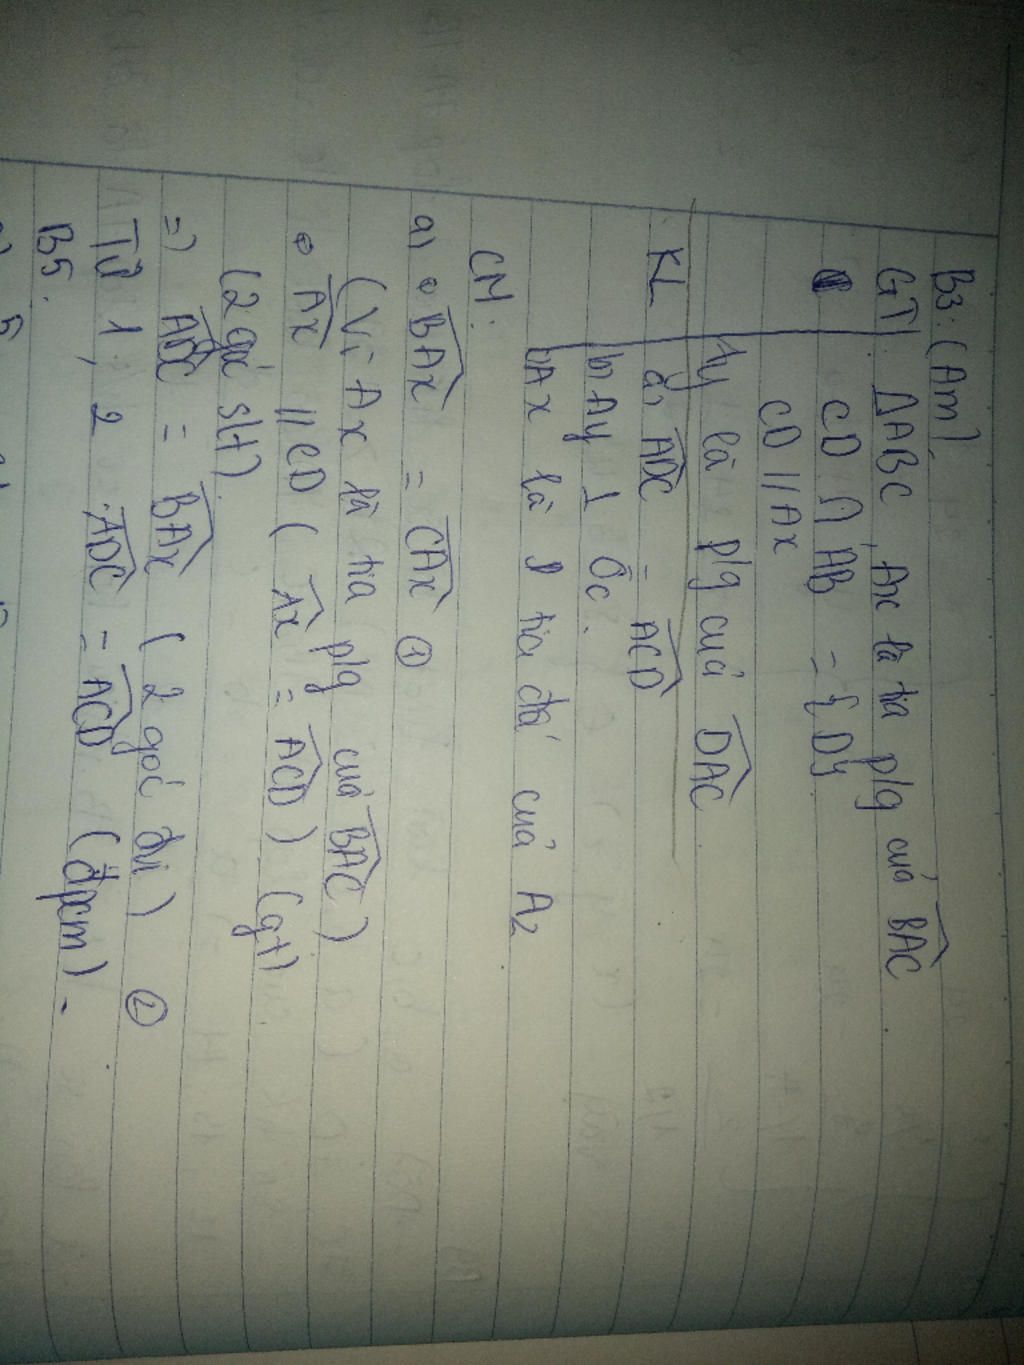 B3: (Am).
GT ΔABC, Ax là tia p/g cuả BAC
CD ∩ AB = {D}
CD // Ax
Ay là p/g cuả DAC
KL a, ADC = ACD
b, Ay ⊥ 
Ax là tia cuả A2
CM:
a, BAx = CAx ①
(Vì Ax là tia p/g cuả BAC)
Ax // CD ( Ax = ACD) (gt)
(2 goć slt).
=) ADC = BAx ( 2 goć đvị) ②
Từ 1, 2 ADC = ACD (đpcm).
B5.